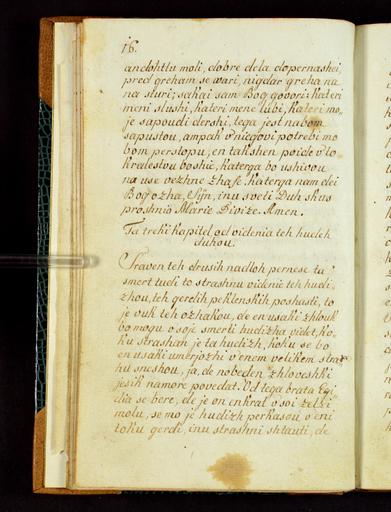 16.
andohtlu moli, dobre dela dopernashei,
pred greham se wari, nigdar greha na
na sturi; sakai sam Bog govori: kateri
meni slushi, kateri mene lubi, kateri mo,,
je sapoudi dershi, tega jest nabom
sapustou, ampak v'niegovi potrebi mo
bom perstopu, en takshen poide v'to
kralestvu boshie, katerga bo ushivou
na use vezhne zhase, katerga nam dei
Bog ozha, Syn, inu sveti Duh skus
proshnio Marie Divize. Amen.
Ta treki kapitel od videnia teh hudeh
duhou.
Sraven teh drusih nadloh pernese ta
smert tudi to strashnu videnie teh hudi,,
zhou, teh gerdih peklenskih poshasti, to
je vuk teh ozhakou, de en usaki zhlouk
bo mogu v'soje smerti hudizha videt, ko,,
ku strashan je ta hudizh, koku se bo
en usaki umerjozhi v'enem velikem stra,,
hu sneshou, ja, de nobeden zhloveshki
jesik namore povedat. Od tega brata Egi,,
dia se bere, de je on enkrat v'soi zelli
molu, se mo je hudizh perkasou v'eni
toku gerdi, inu strashni shtauti, de